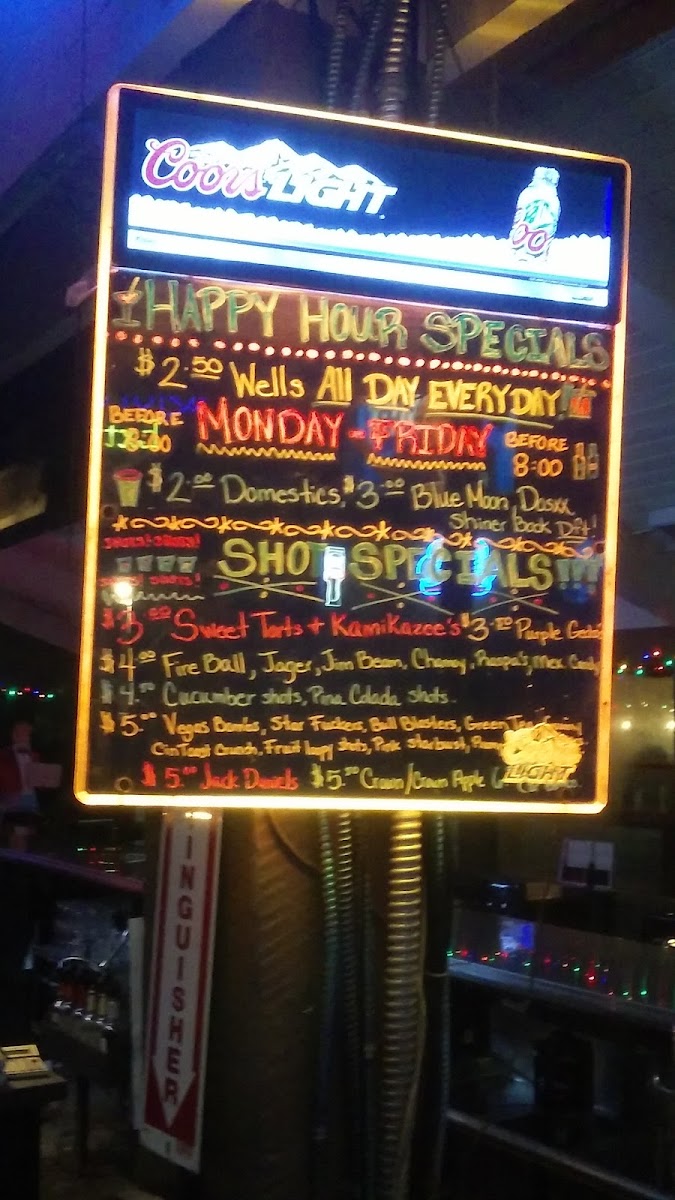 Coors LIGHT
Coo
HAPPY HOUR SPECIALS
$2.50 Wells All DAY EVERYDAY!
BEFORE 8:00 MONDAY-FRIDAY BEFORE 8:00
$2.00 Domestics, $3.00 Blue Moon, Dosxx
Shiner Bock Dft!
SHOTS! SHOTS!
SHOT SPECIALS!!!
SHOTS! SHOTS!
$3.00 Sweet Tarts + Kamikazee's $3.50 Purple
$4.00 Fire Ball, Jager, Jim Beam, Mex Candy
$4.50 Cucumber shots, Pina Colada shots.
$5.00 Vegas Bombs, Star Fuckers, Bull Blasters, Green Tea
CinToast Crunch, Fruit loopy shots, Pink starburst,
LIGHT
$5.00 Jack Daniels $5.50 Crown/Crown Apple
INGUISHER